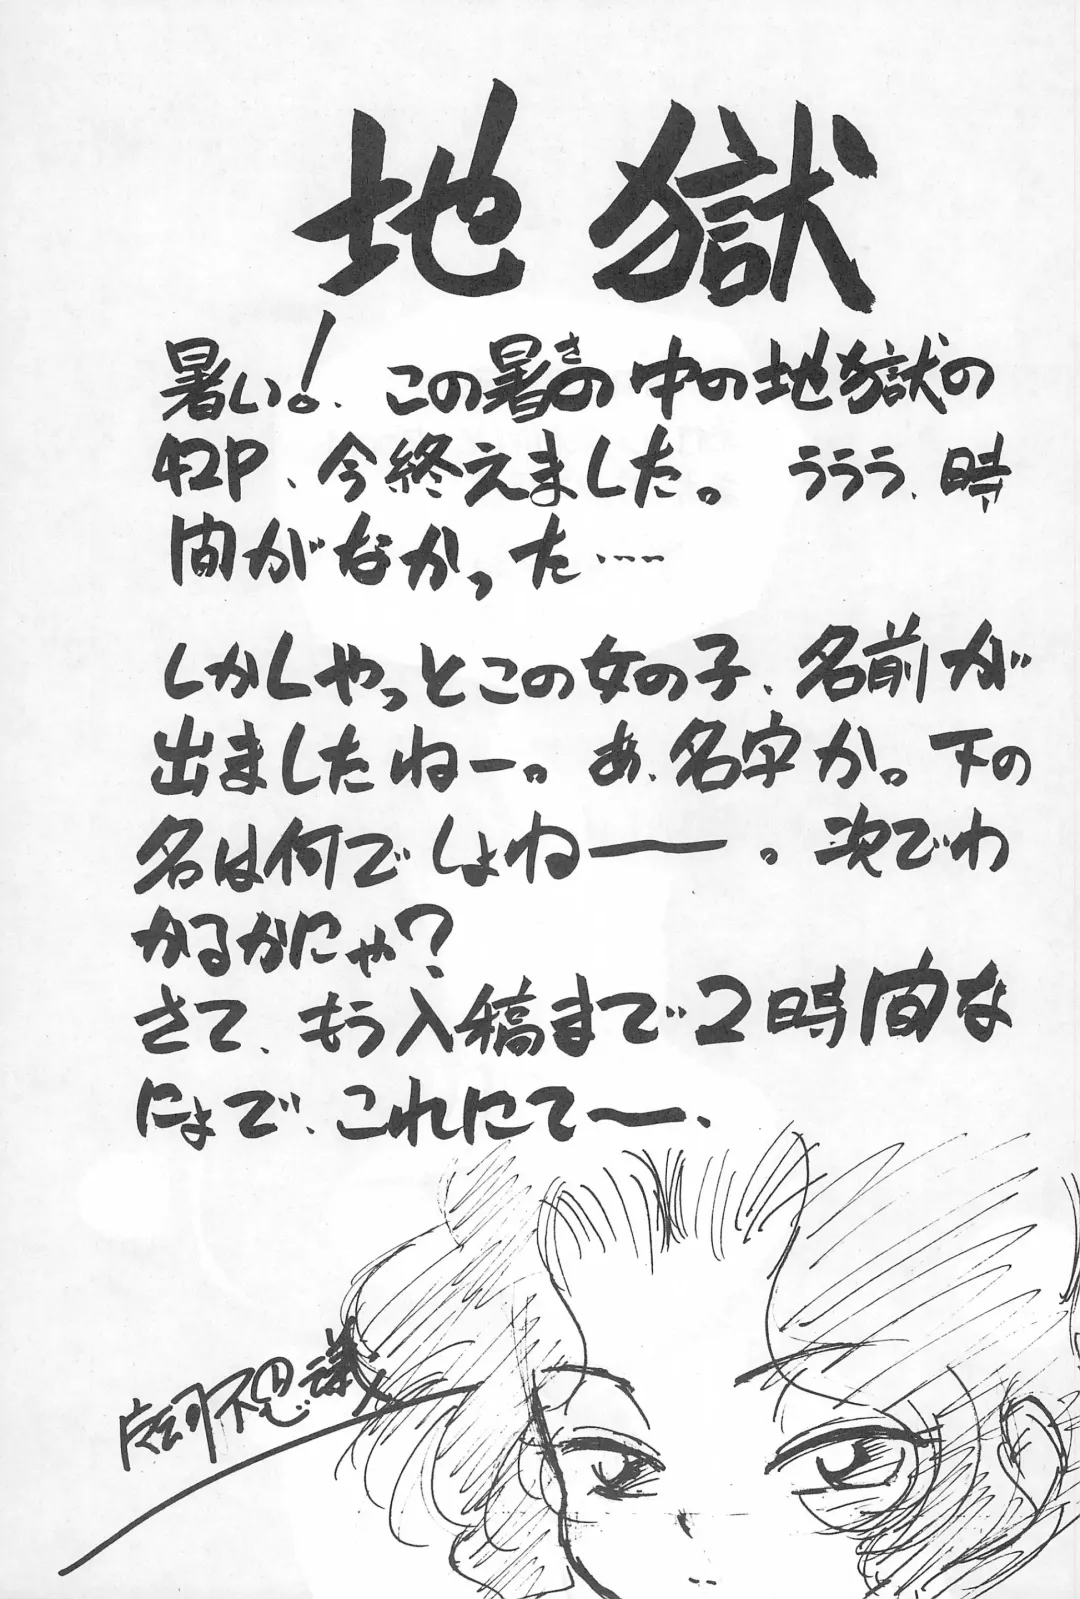 地獄
暑い!、この暑さの中の地獄の
42P、今終えました。 ううう、時
間がなかった……
しかしやっとこの女の子、名前が
出ましたねー。あ、名字か。下の
名は何でしょねー。次でわ
かるかにゃ?
さて、もう入稿まで2時間な
にょで、これにてー、
不思議